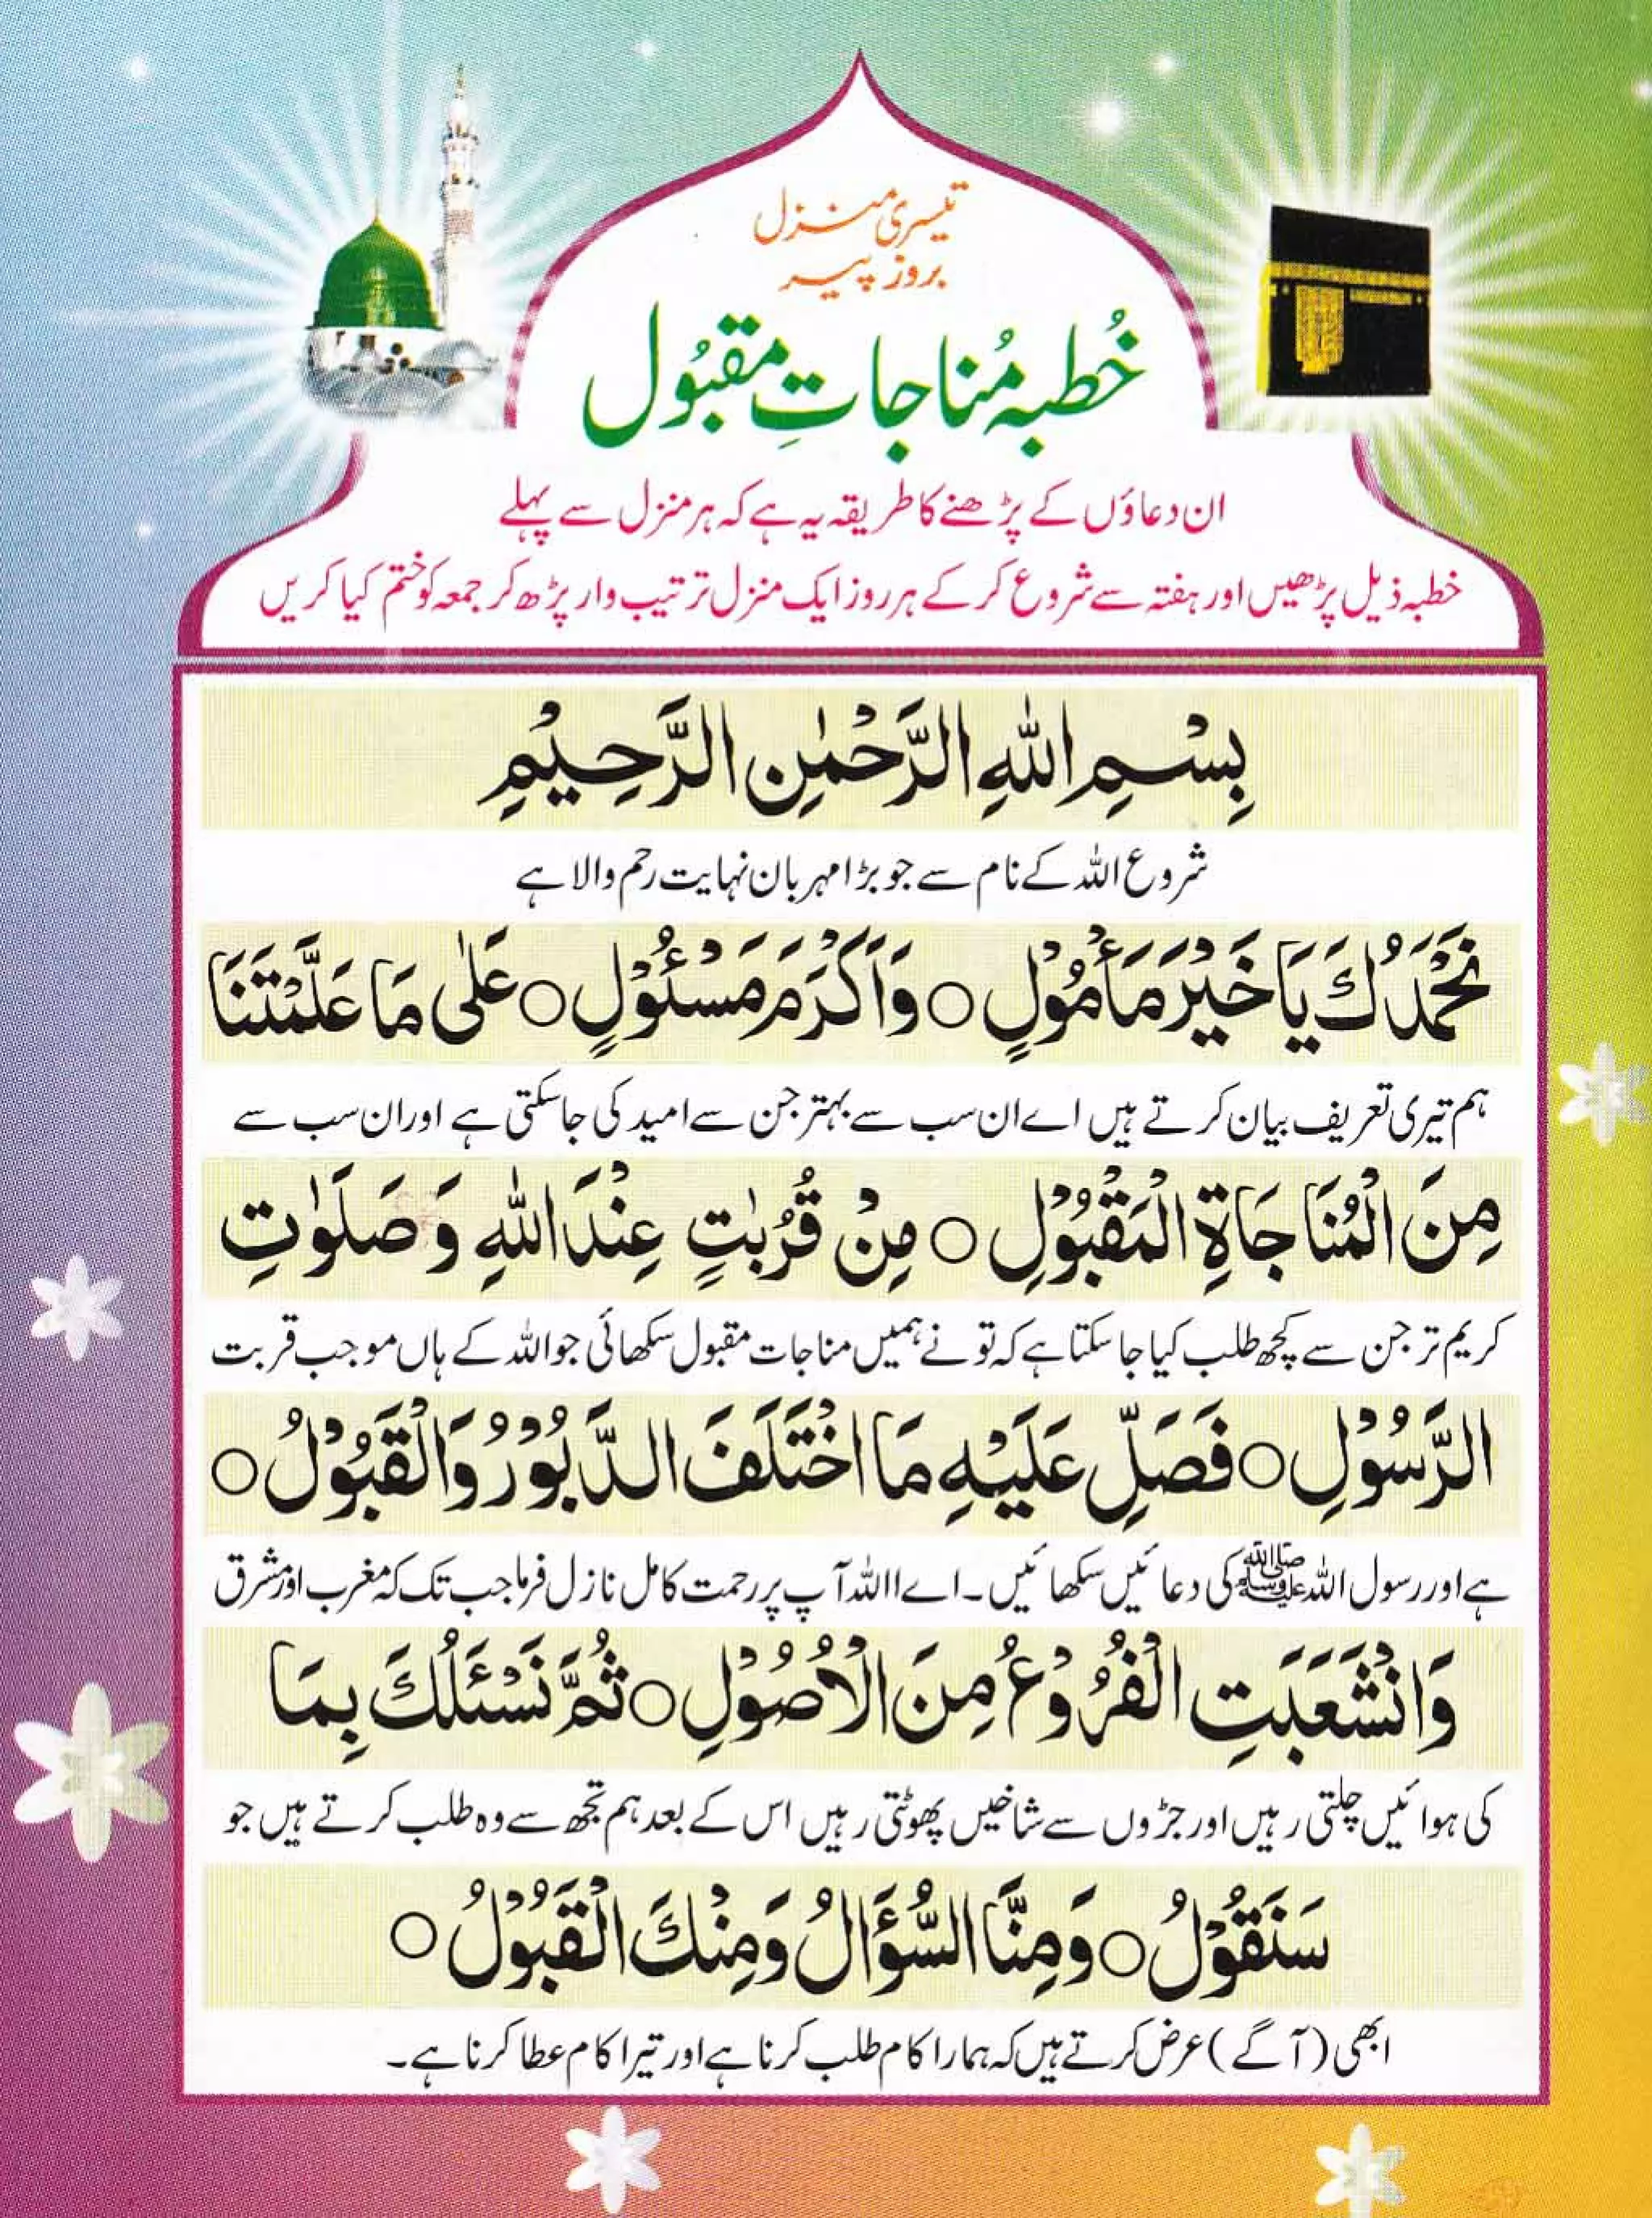 تیسری منزل
بروز پیر
خُطبہ مُناجاتِ مقبُول
ان دعاؤں کے پڑھنے کا طریقہ یہ ہے کہ ہر منزل سے پہلے
خطبہ ذیل پڑھیں اور ہفتہ سے شروع کر کے ہر روز ایک منزل ترتیب وار پڑھ کر جمعہ کو ختم کیا کریں
بِسْمِ اللّٰهِ الرَّحْمٰنِ الرَّحِيْمِ
شروع اللہ کے نام سے جو بڑا مہربان نہایت رحم والا ہے
نَحْمَدُكَ يَا خَيْرَ مَأْمُوْلٍ ○ وَاَكْرَمَ مَسْئُوْلٍ ○ عَلٰى مَا عَلَّمْتَنَا
ہم تیری تعریف بیان کرتے ہیں اے ان سب سے بہتر جن سے امید کی جا سکتی ہے اور ان سب سے
مِنَ الْمُنَاجَاةِ الْمَقْبُوْلِ ○ مِنْ قُرُبٰتٍ عِنْدَ اللّٰهِ وَصَلَوٰتِ
کریم تر جن سے کچھ طلب کیا جا سکتا ہے کہ تو نے ہمیں مناجات مقبول سکھائی جو اللہ کے ہاں موجب قربت
الرَّسُوْلِ ○ فَصَلِّ عَلَيْهِ مَا اخْتَلَفَ الدَّبُوْرُ وَالْقَبُوْلُ ○
ہے اور رسول اللہ ﷺ کی دعائیں سکھائیں۔ اے االلہ آپ پر رحمت کامل نازل فرما جب تک کہ مغرب اور مشرق
وَانْشَعَبَتِ الْفُرُوْعُ مِنَ الْاُصُوْلِ ○ ثُمَّ نَسْئَلُكَ بِمَا
کی ہوائیں چلتی رہیں اور جڑوں سے شاخیں پھوٹتی رہیں اس کے بعد ہم تجھ سے وہ طلب کرتے ہیں جو
سَنَقُوْلُ ○ وَمِنَّا السُّؤَالُ وَمِنْكَ الْقَبُوْلُ ○
ابھی (آگے) عرض کرتے ہیں کہ ہمارا کام طلب کرنا ہے اور تیرا کام عطا کرنا ہے۔